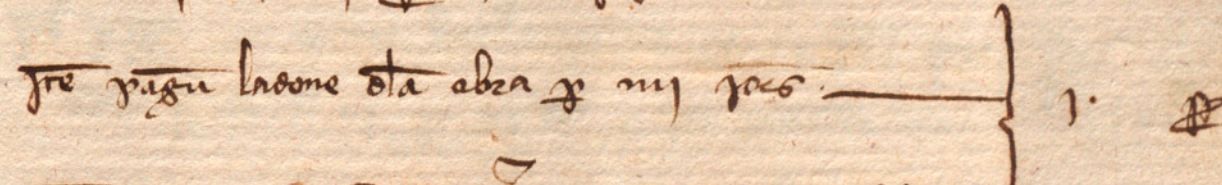 Ite pagu ladone dla obra p iiij jors. j. ₰